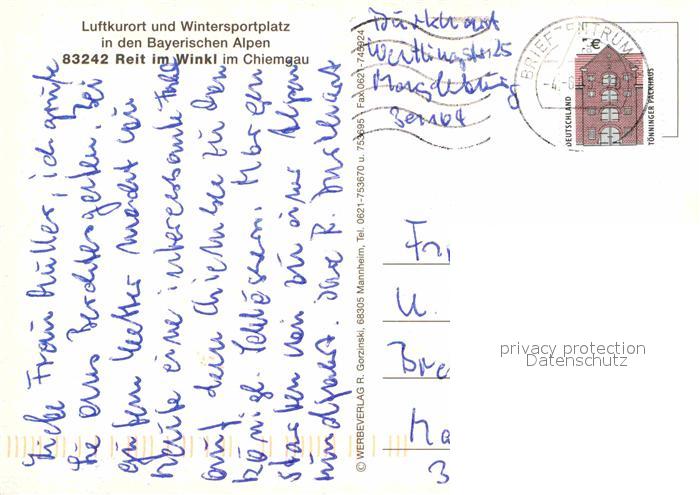 Luftkurort und Wintersportplatz
in den Bayerischen Alpen
83242 Reit im Winkl im Chiemgau
Liebe Frau Müller, ich grüße
Sie aus Berchtesgaden. Bei
gutem Wetter machten wir
heute eine interessante
auf dem Chiemsee zu den
königl. Schlössern. Morgen
starten wir zu einer Alpen
rundfahrt. Ihre R. Burkhart
© WERBEVERLAG R. Gorzinski, 68305 Mannheim, Tel. 0621-753670 u. 753695 Fax 0621-745924
Burkhart
Magdeburg
39104
BRIEFZENTRUM
DEUTSCHLAND
TÖNNINGER PACKHAUS
U.
privacy protection
Datenschutz
3